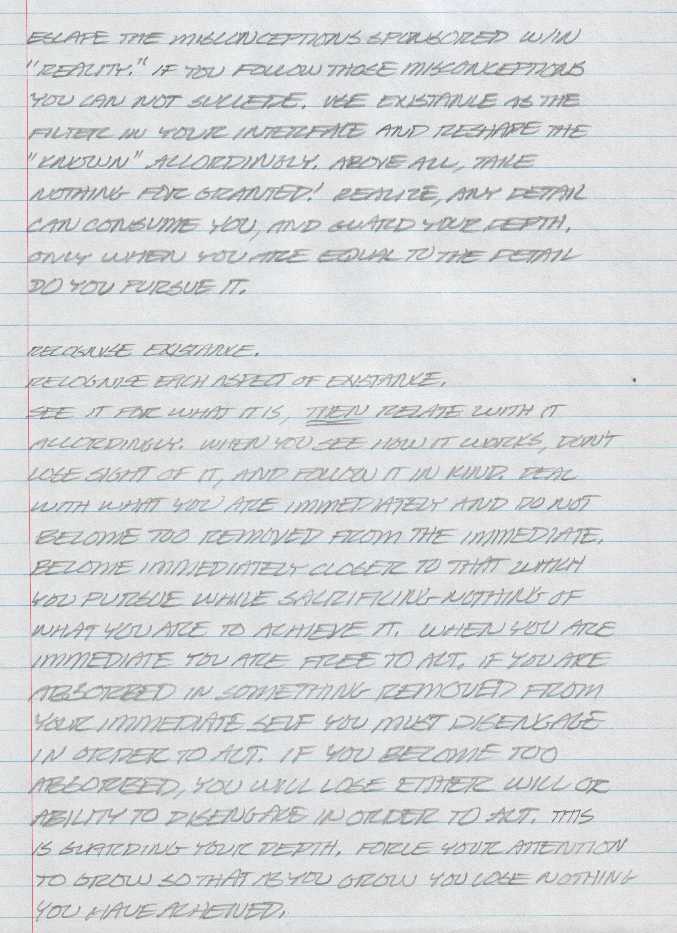 ESCAPE THE MISCONCEPTIONS SPONSORED W/IN
"REALITY." IF YOU FOLLOW THOSE MISCONCEPTIONS
YOU CAN NOT SUCCEDE. USE EXISTANCE AS THE
FILTER IN YOUR INTERFACE AND RESHAPE THE
"KNOWN" ACCORDINGLY. ABOVE ALL, TAKE
NOTHING FOR GRANTED! REALIZE, ANY DETAIL
CAN CONSUME YOU, AND GUARD YOUR DEPTH.
ONLY WHEN YOU ARE EQUAL TO THE DETAIL
DO YOU PURSUE IT.
RECOGNISE EXISTANCE.
RECOGNISE EACH ASPECT OF EXISTANCE.
SEE IT FOR WHAT IT IS, THEN RELATE WITH IT
ACCORDINGLY. WHEN YOU SEE HOW IT WORKS, DON'T
LOSE SIGHT OF IT, AND FOLLOW IT IN KIND. DEAL
WITH WHAT YOU ARE IMMEDIATELY AND DO NOT
BECOME TOO REMOVED FROM THE IMMEDIATE.
BECOME IMMEDIATELY CLOSER TO THAT WHICH
YOU PURSUE WHILE SACRIFICING NOTHING OF
WHAT YOU ARE TO ACHIEVE IT. WHEN YOU ARE
IMMEDIATE YOU ARE FREE TO ACT. IF YOU ARE
ABSORBED IN SOMETHING REMOVED FROM
YOUR IMMEDIATE SELF YOU MUST DISENGAGE
IN ORDER TO ACT. IF YOU BECOME TOO
ABSORBED, YOU WILL LOSE EITHER WILL OR
ABILITY TO DISENGAGE IN ORDER TO ACT. THIS
IS GUARDING YOUR DEPTH. FORCE YOUR ATTENTION
TO GROW SO THAT AS YOU GROW YOU LOSE NOTHING
YOU HAVE ACHEIVED.